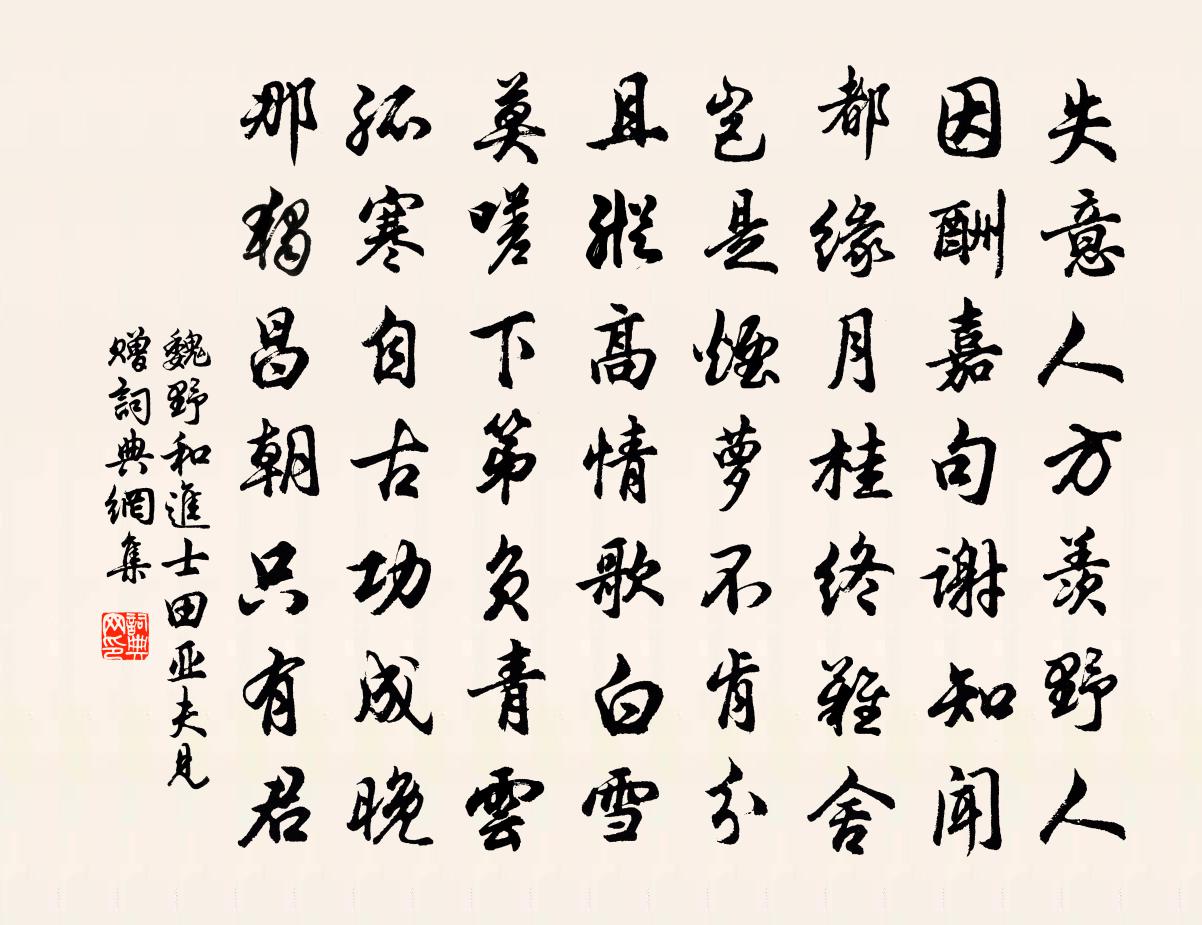 失意人方羨野人
因酬嘉句謝知聞
都緣月桂終難舍
豈是煙蘿不肯分
且縱高情歌白雪
莫嗟下第負青雲
孤寒自古功成晚
那獨昌朝只有君
魏野和進士田亚夫見
赠詞典網集
詞典网印